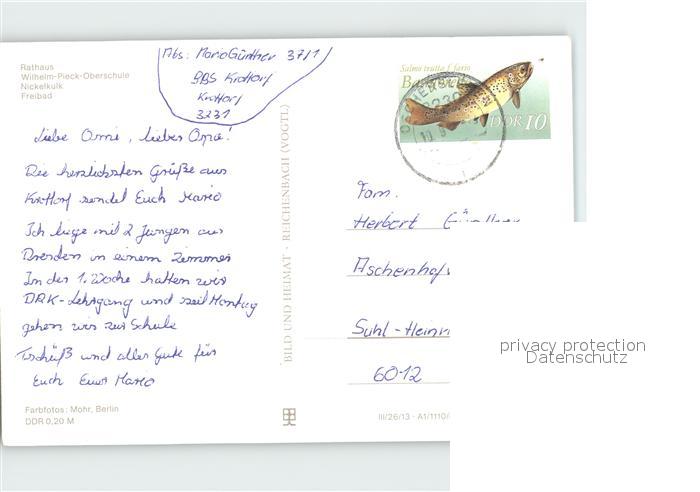 Rathaus
Wilhelm-Pieck-Oberschule
Nickelkulk
Freibad
Abs: Mario Günther 37/1
BBS Krottorf
Krottorf
3231
Liebe Omi, lieber Opa!
Die herzlichsten Grüße aus
Krottorf sendet Euch Mario
Ich liege mit 2 Jungen aus
Dresden in einem Zimmer
In der 1. Woche hatten wir
DRK-Lehrgang und seit Montag
gehen wir zur Schule
Tschüß und alles Gute für
Euch Euer Mario
Farbfotos: Mohr, Berlin
DDR 0,20 M
BILD UND HEIMAT · REICHENBACH (VOGTL)
Salmo trutta f. fario
DDR 10
Fam.
Herbert
Aschenhof
Suhl-Heinr
6012
III/26/13 · A1/1110/
privacy protection
Datenschutz